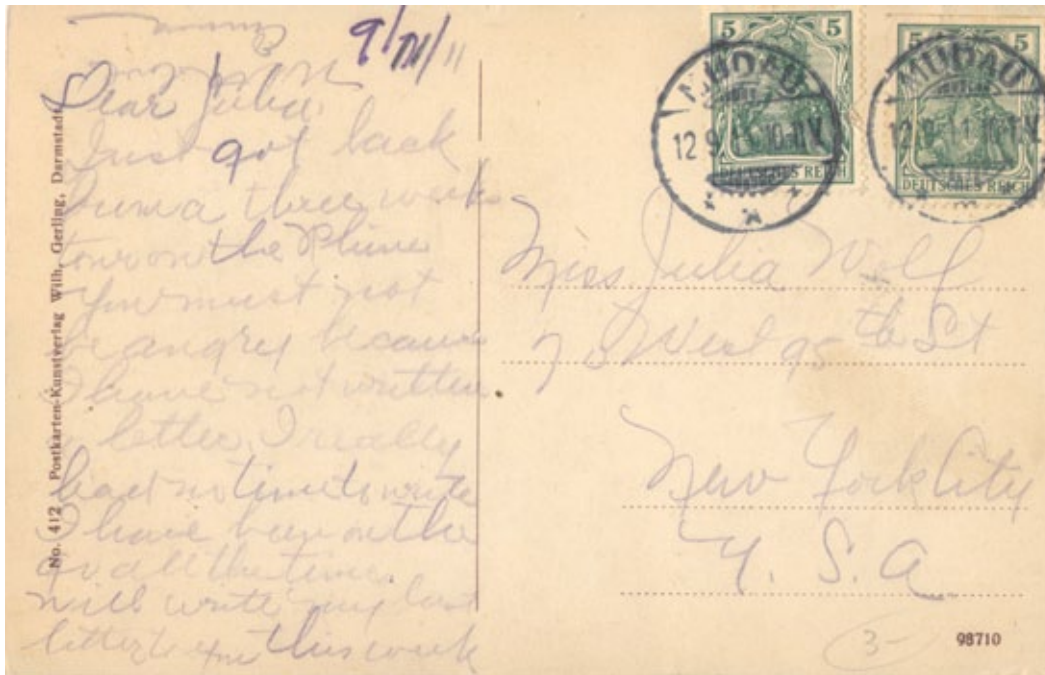 9/VII/11
Dear Julia.
Just got back
from a three weeks
tour on the Rhine
You must not
be angry because
I have not written
a letter, I really
had no time to write
I have been on the
go all the time.
will write my last
letter to you this week
Emma
No. 412 Postkarten-Kunstverlag Wilh. Gerling, Darmstadt
5 5
DEUTSCHES REICH
MUDAU
12 9 11 10-11 V.
5 5
DEUTSCHES REICH
MUDAU
12 9 11 10-11 V.
Miss Julia Wolf
73 West 95th St
New York City
U. S. A.
3-
98710